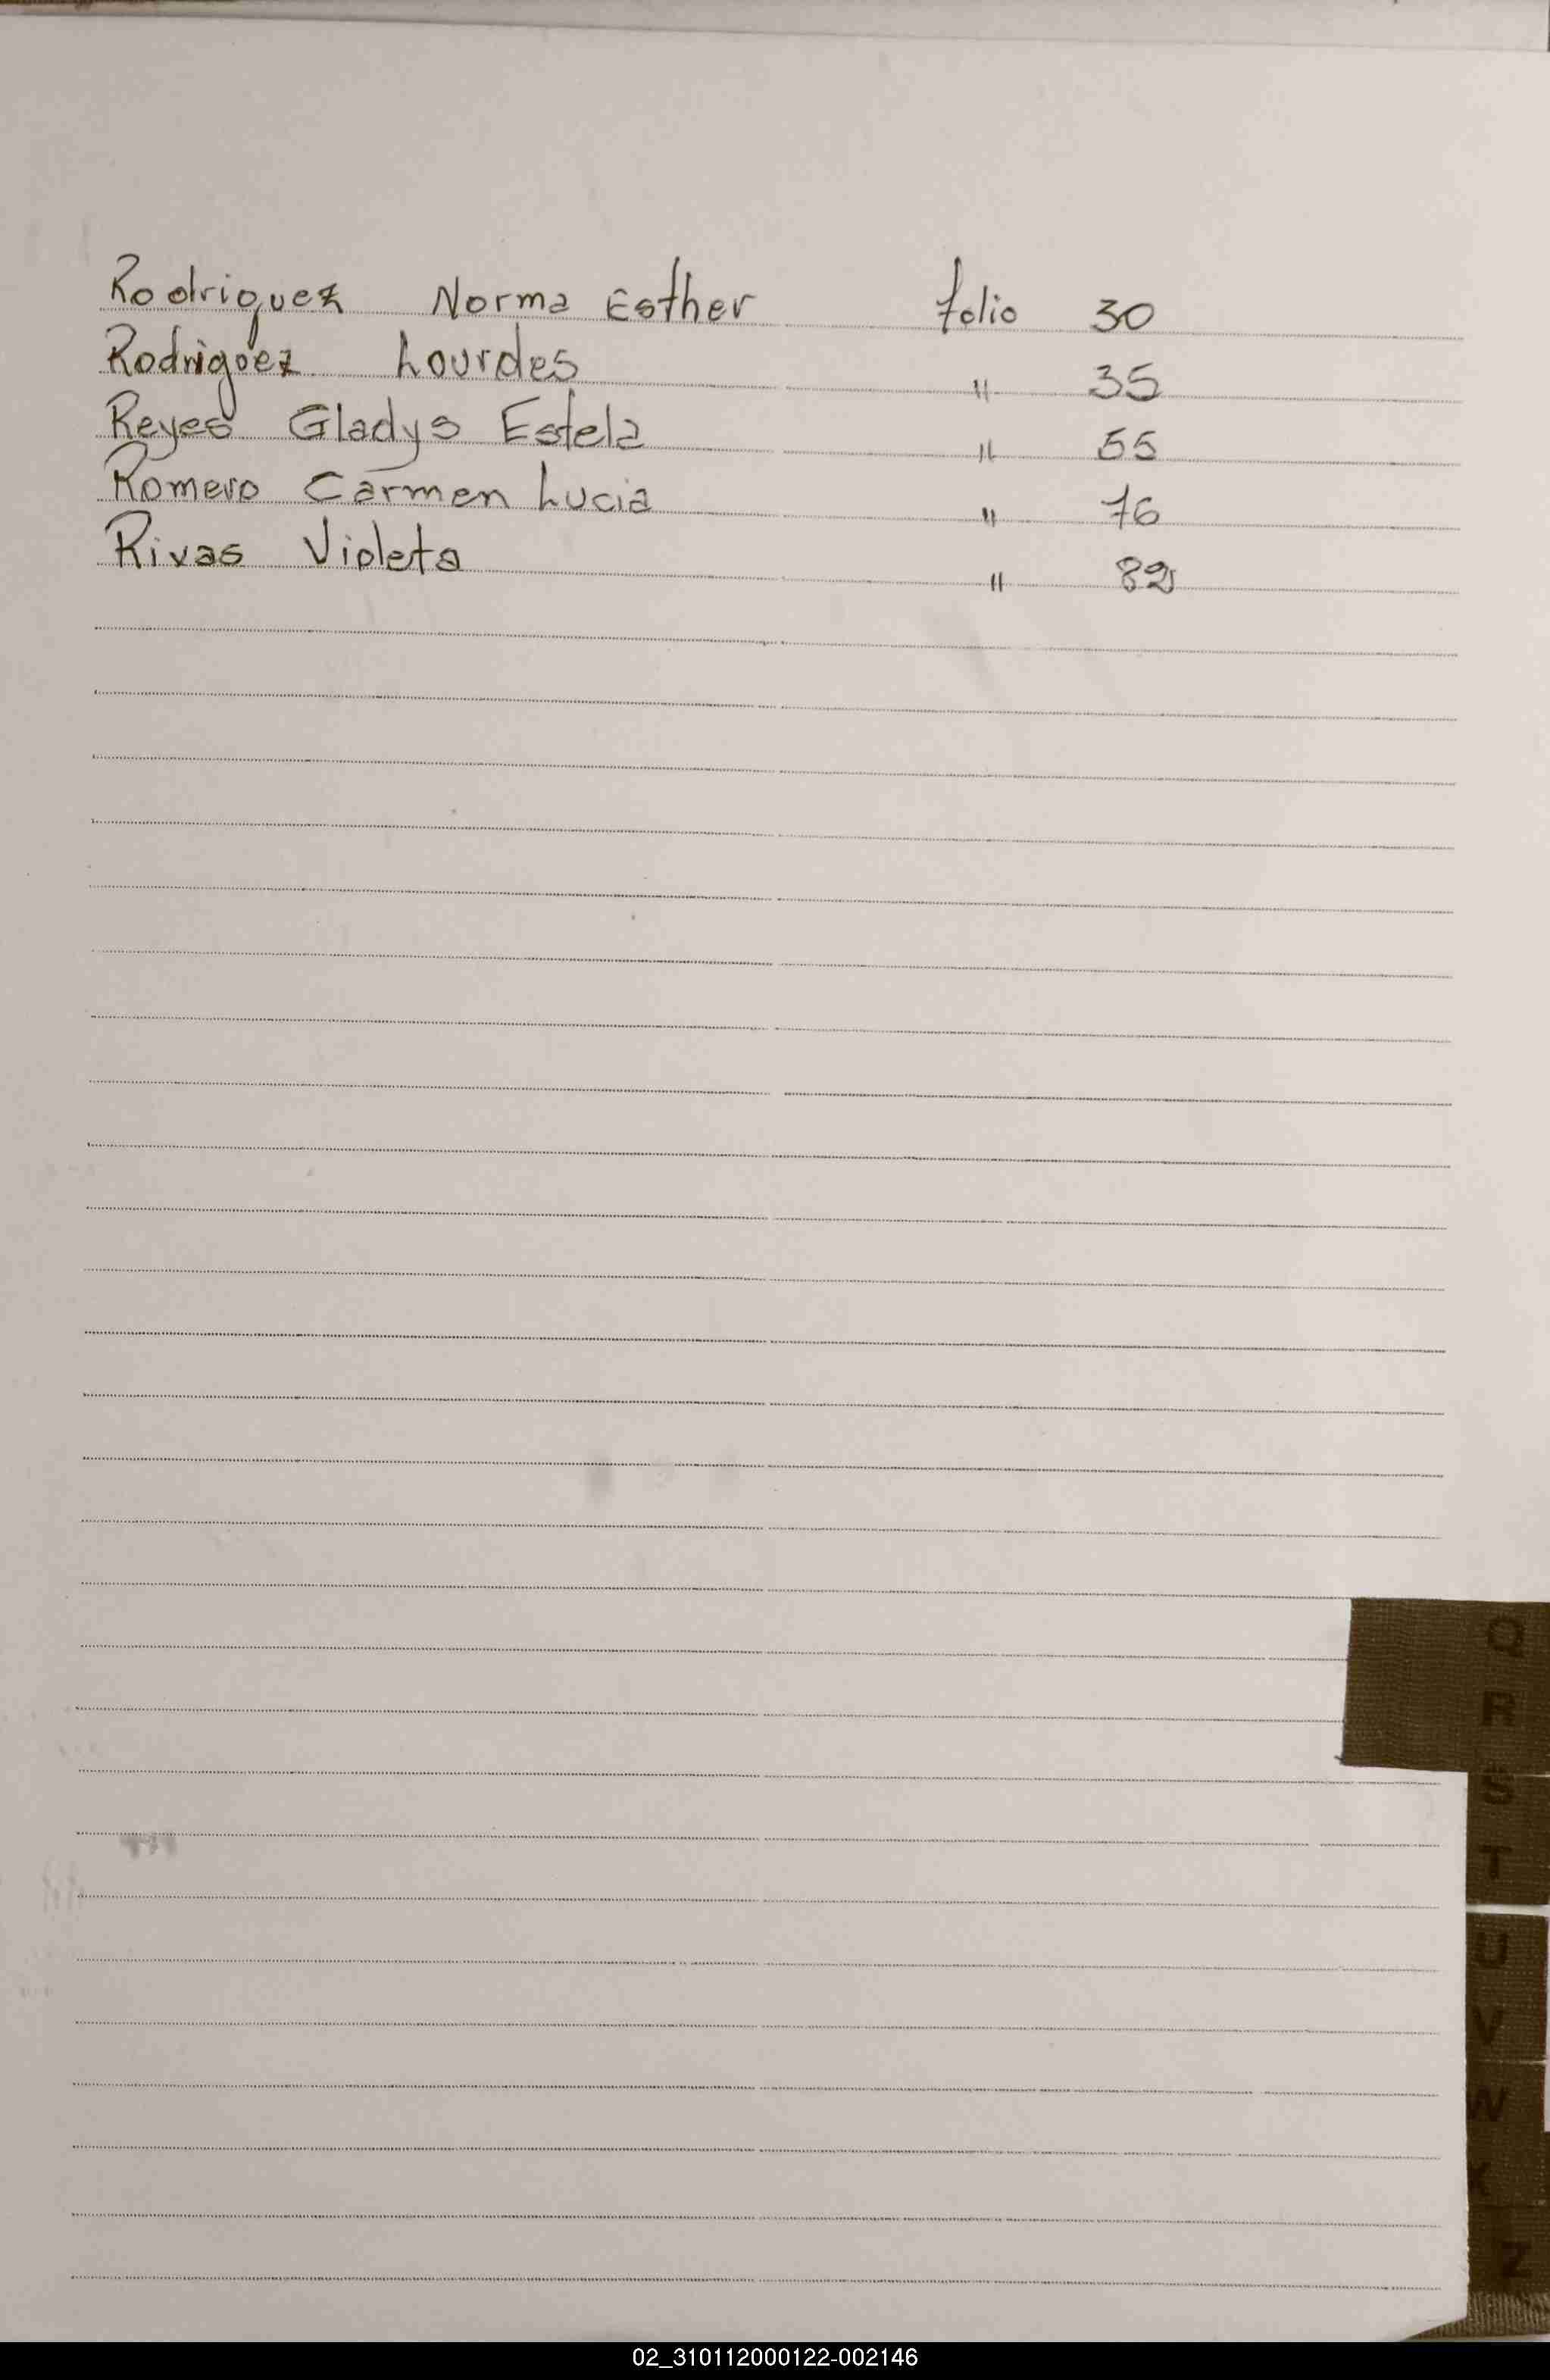 Rodriguez Norma Esther folio 30
Rodriguez Lourdes " 35
Reyes Gladys Estela " 55
Romero Carmen Lucia " 76
Rivas Violeta " 82
Q
R
S
T
U
V
W
X
Z
02_310112000122-002146